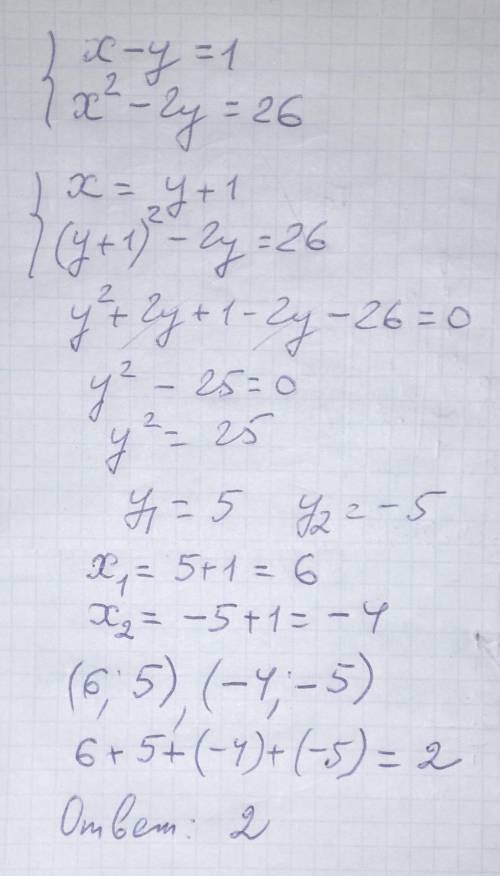 { x - y = 1
x² - 2y = 26
{ x = y + 1
(y + 1)² - 2y = 26
y² + 2y + 1 - 2y - 26 = 0
y² - 25 = 0
y² = 25
y₁ = 5 y₂ = -5
x₁ = 5 + 1 = 6
x₂ = -5 + 1 = -4
(6; 5), (-4; -5)
6 + 5 + (-4) + (-5) = 2
Ответ: 2